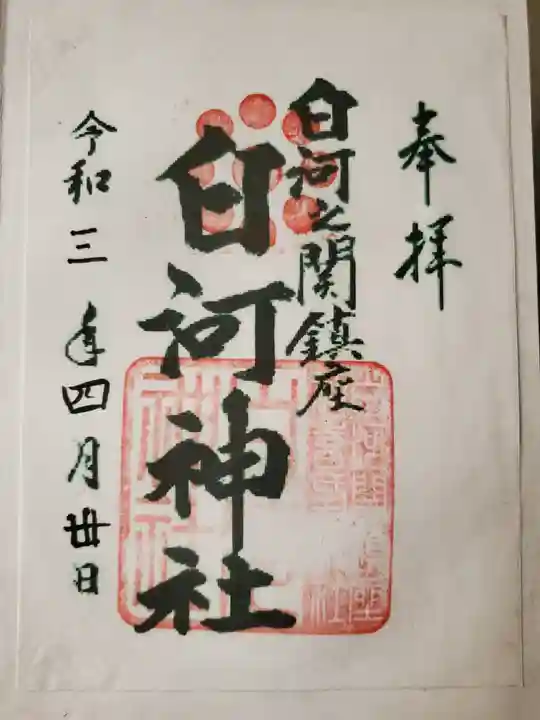 奉拝
白河之関鎮座
白河神社
令和三年四月丗日